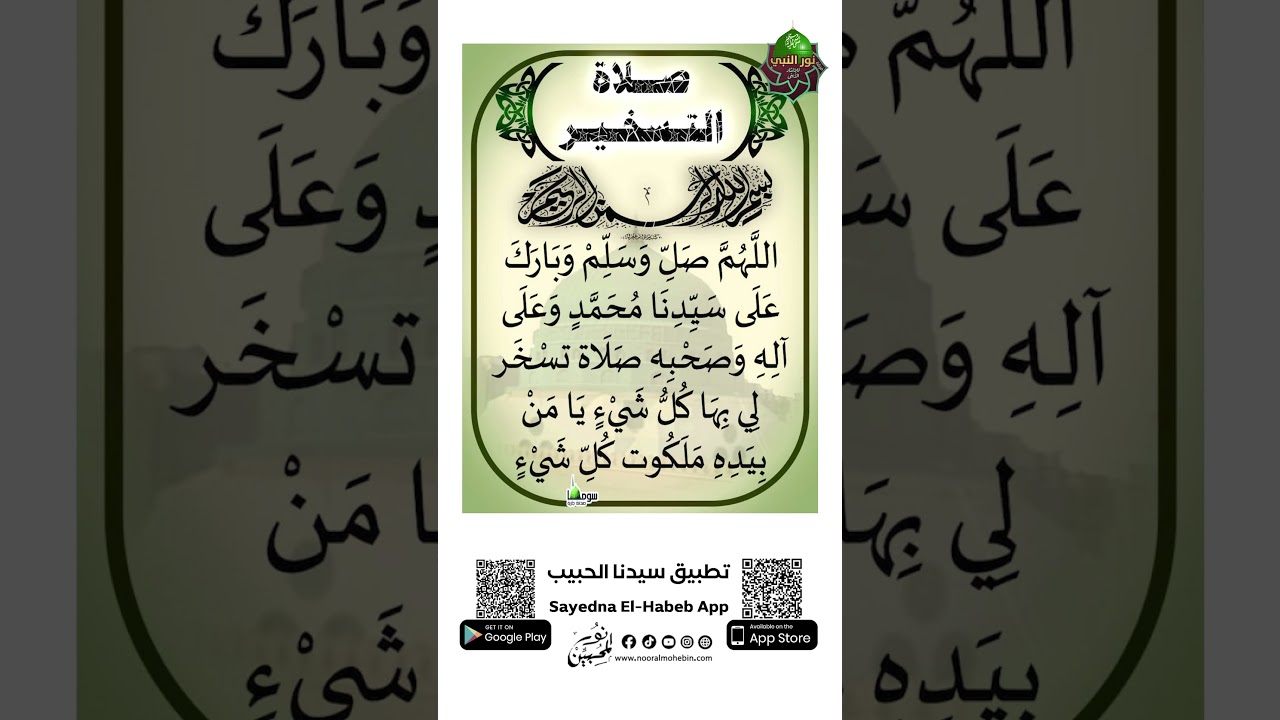 نور النبي
صلاة
التسخير
بسم الله الرحمن الرحيم
اللَّهُمَّ صَلِّ وَسَلِّمْ وَبَارَكَ
عَلَى سَيِّدِنَا مُحَمَّدٍ وَعَلَى
آلِهِ وَصَحْبِهِ صَلَاة تسْخَر
لِي بِهَا كُلُّ شَيْءٍ يَا مَنْ
بِيَدِهِ مَلَكُوت كُلِّ شَيْءٍ
تطبيق سيدنا الحبيب
Sayedna El-Habeb App
GET IT ON
Google Play
Available on the
App Store
نور المحبين
www.nooralmohebin.com